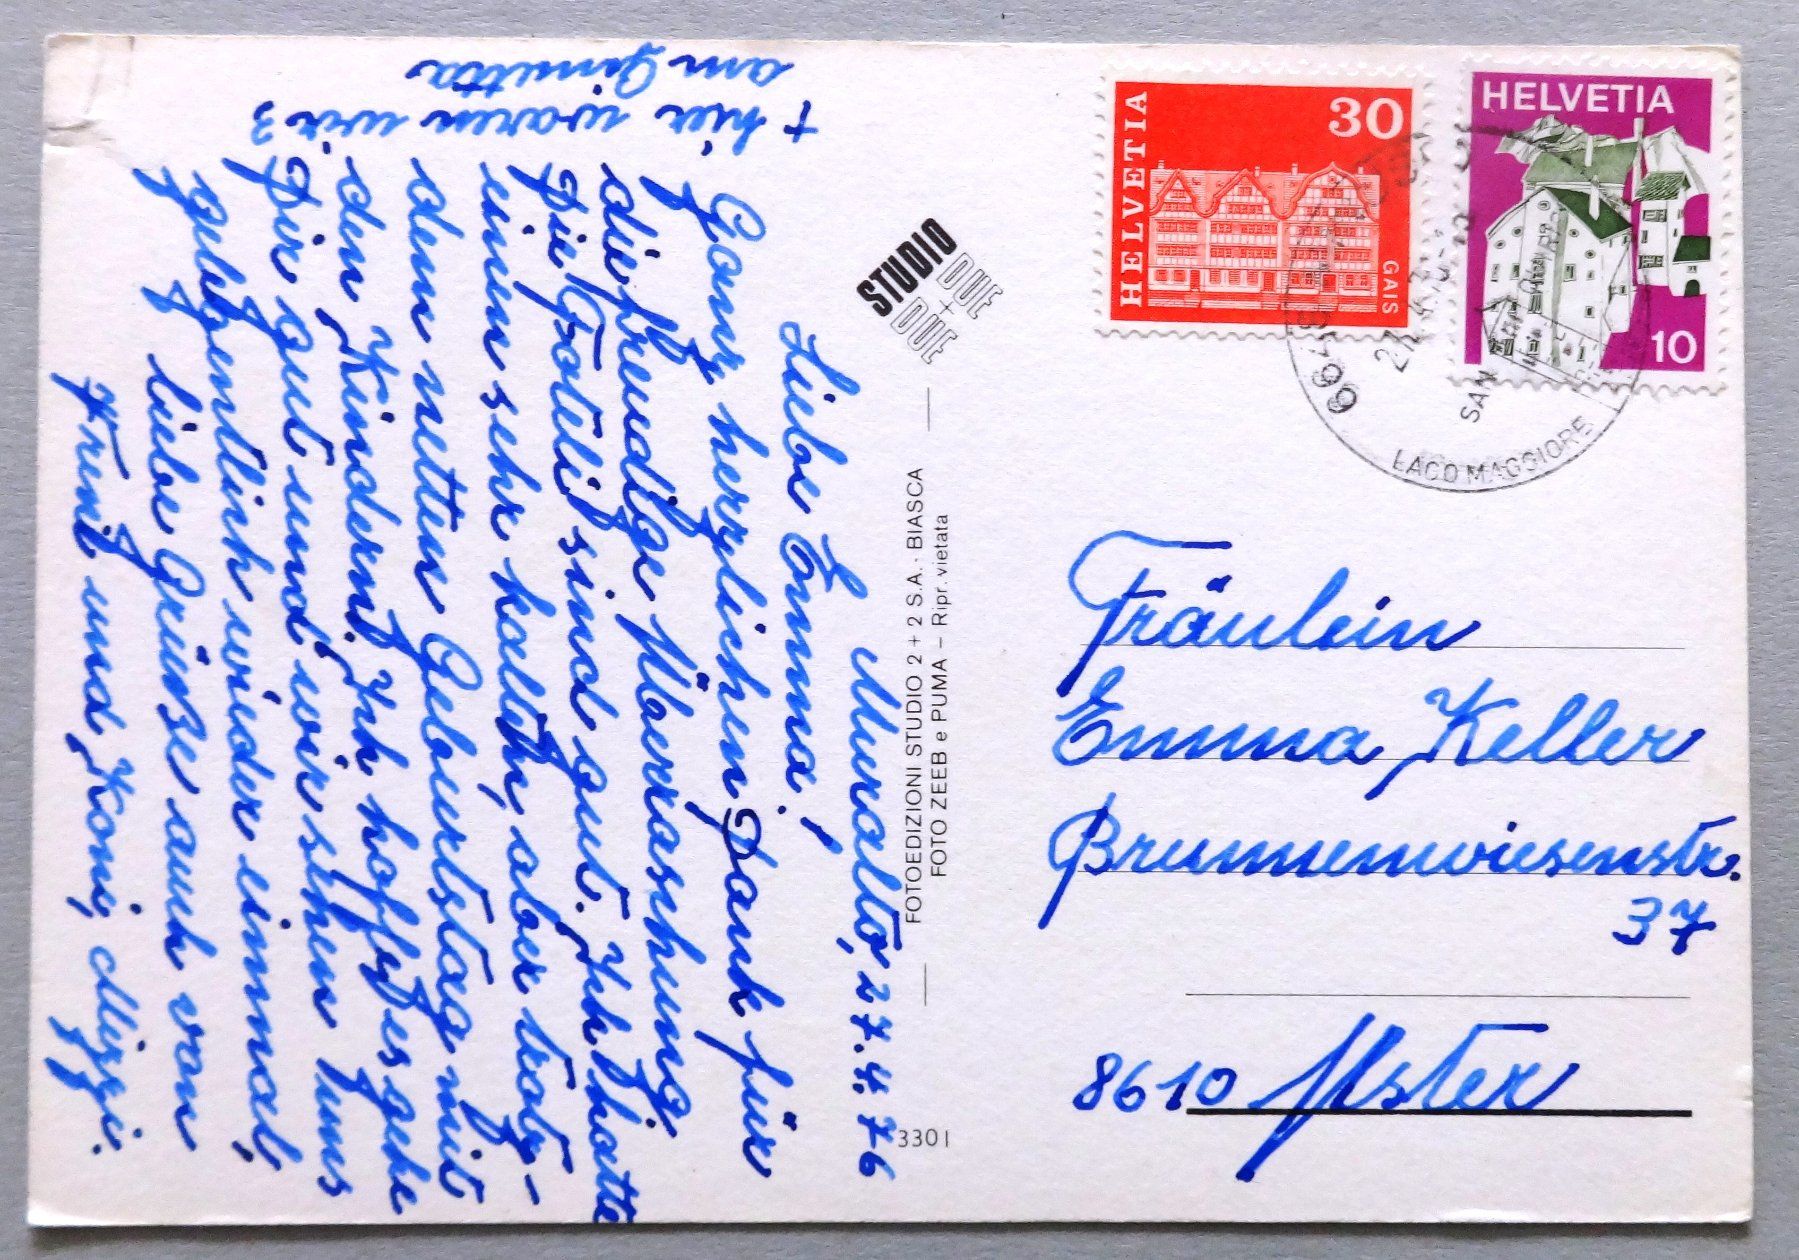 Muralto, 27.4.76
Liebe Emma!
Ganz herzlichen Dank für
die freudige Überraschung.
Die Foteli sind gut. Ich hatte
einen sehr kalten, aber trotz-
dem netten Geburtstag mit
den Kindern. Ich hoffe es gehe
Dir gut und wir sehen uns
gelegentlich wieder einmal,
liebe Grüsse auch von
Freni und Koni, Mizzi.
+ hier waren wir 3
am
STUDIO
DUE
+
DUE
FOTOEDIZIONI STUDIO 2 + 2 S.A. · BIASCA
FOTO ZEEB e PUMA – Ripr. vietata
3301
HELVETIA
30
GAIS
HELVETIA
10
6799
27.
SAN
LAGO MAGGIORE
Fräulein
Emma Keller
Brunnenwiesenstr.
37
8610 Uster